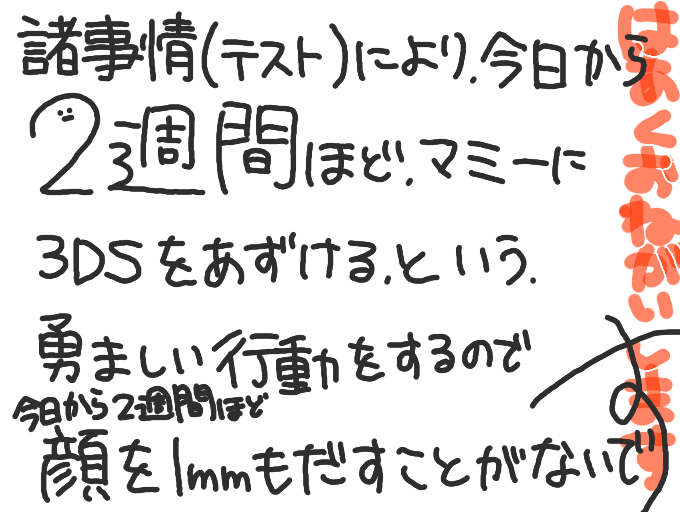 諸事情(テスト)により、今日から
2週間ほど、マミーに
3DSをあずける、という、
勇ましい行動をするので
今日から2週間ほど
顔を1mmもだすことがないで
す